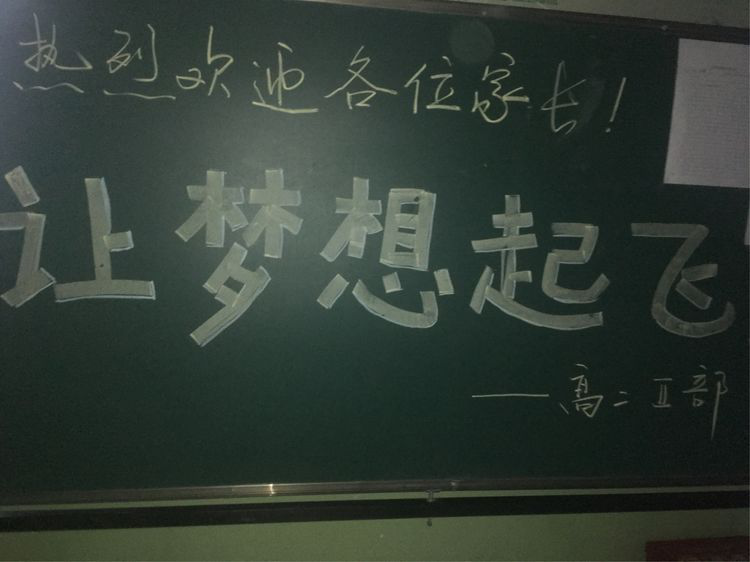 热烈欢迎各位家长!
让梦想起飞
——高二Ⅱ部